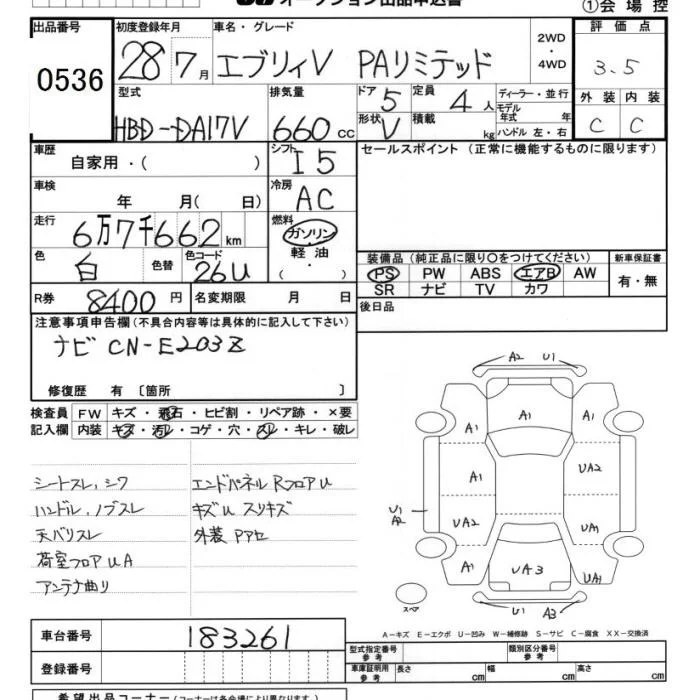 オークション出品申込書
①会場控
出品番号 初度登録年月 車名・グレード 評価点
0536 28年7月 エブリィV PAリミテッド 2WD・4WD 3.5
型式 排気量 ドア 5 定員 4人 ディーラー・並行 外装 内装
HBD-DA17V 660cc 形状 V 積載 kg モデル年式 年 ハンドル 左・右 C C
車歴 自家用・( ) シフト I5 セールスポイント (正常に機能するものに限ります)
車検 年 月( 日) 冷房 AC
走行 6万7千662km 燃料 ガソリン・軽油・( )
色 白 色替 色コード 26U
装備品 (純正品に限り○をつけてください) 新車保証書
PS PW ABS エアB AW 有・無
SR ナビ TV カワ
R券 8400円 名変期限 月 日 後日品
注意事項申告欄(不具合内容等は具体的に記入して下さい)
ナビ CN-E203Z
修復歴 有 〔箇所 〕
検査員記入欄 FW キズ・飛石・ヒビ割・リペア跡・×要
内装 キズ・汚レ・コゲ・穴・スレ・キレ・破レ
シートスレ、シワ エンドパネル RフロアU
ハンドル、ノブスレ キズU スリキズ
天バリスレ 外装 Pアセ
荷室フロアUA
アンテナ曲り
A2 U1
A1 A1 A1
A1 UA2
U1 A2
UA2 UA1
A1 UA3 UA1
スペア
U1 A3
A-キズ E-エクボ U-凹み W-補修跡 S-サビ C-腐食 XX-交換済
車台番号 183261
型式指定番号 参考 類別区分番号 参考
登録番号
車庫証明用 参考 長さ cm 幅 cm 高さ cm
希望出品コーナー(コーナーは各会場により異なります)